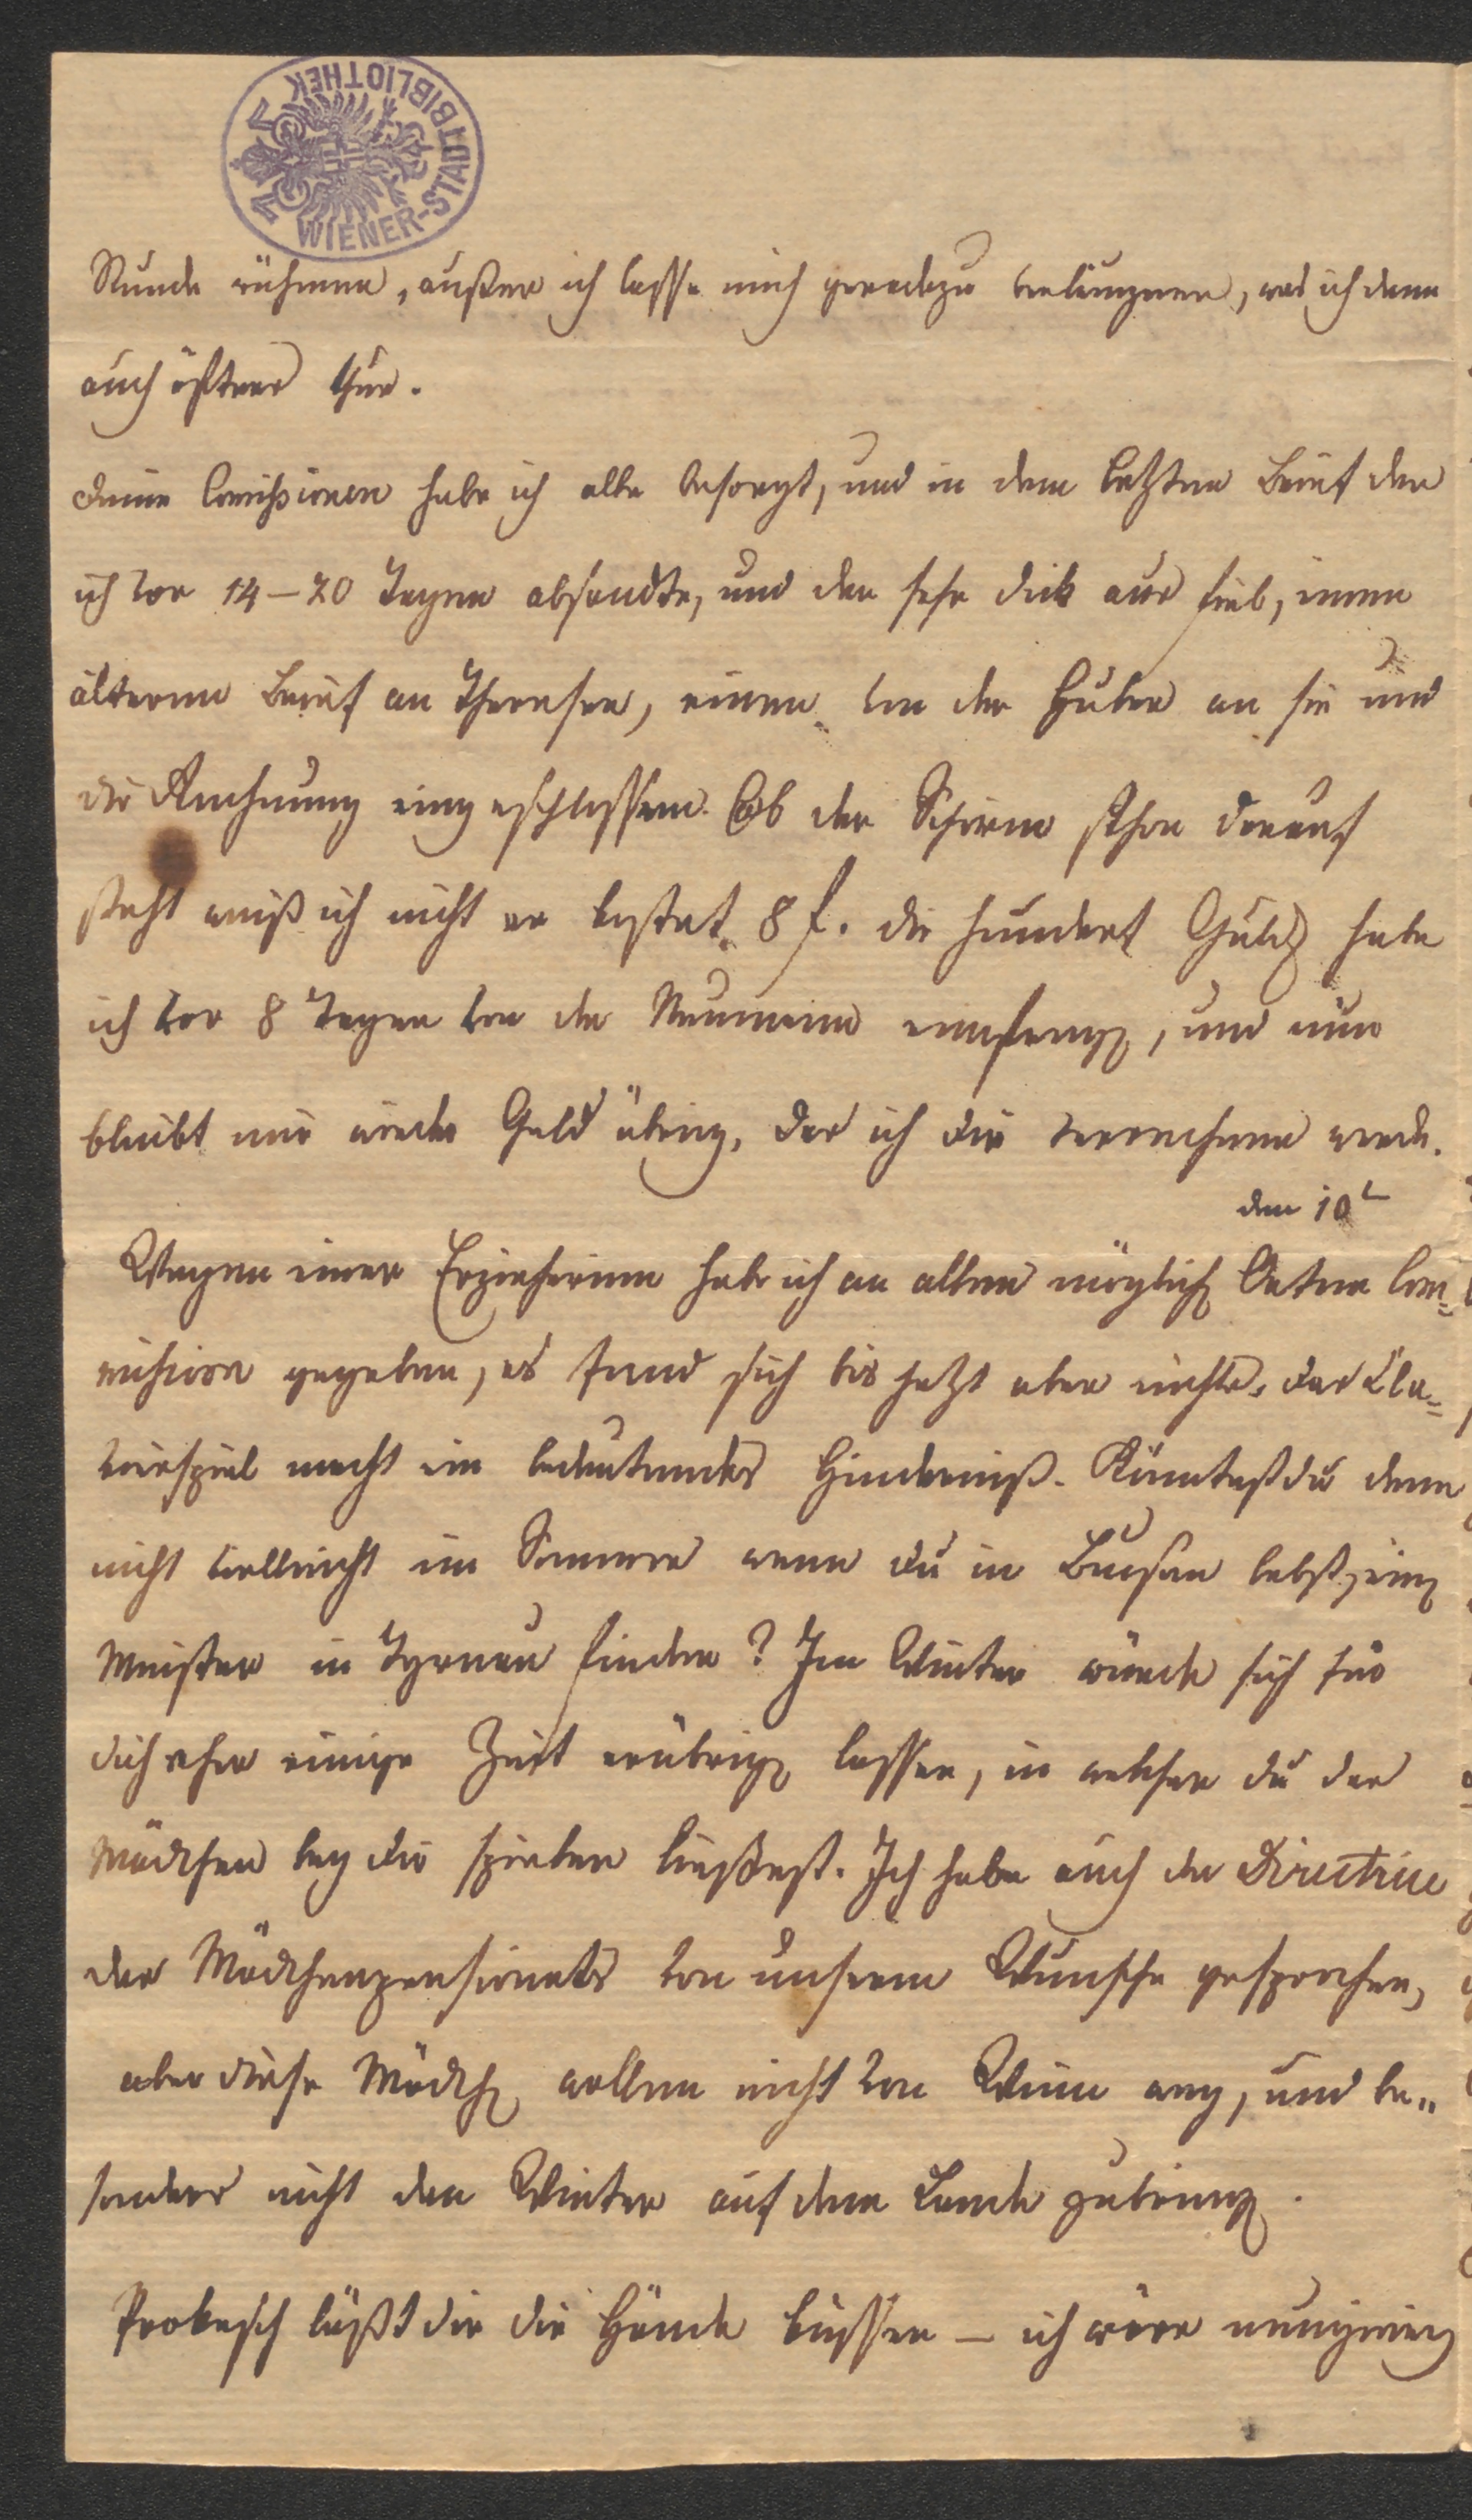 WIENER-STADTBIBLIOTHEK
Stunde nehmen, außer ich lasse mich geradezu verläugnen, was ich denn
auch öfters thue.
Deine Comißionen habe ich alle besorgt, und in dem letzten Brief den
ich vor 14–20 Tagen absandte, und der sehr dick aus fiel, einen
älteren Brief an Theresen, einen von der Huber an sie und
die Rechnung eingeschlossen. Ob der Schirm schon darauf
steht weiß ich nicht er kostet 8 f. die hundert Guld habe
ich vor 8 Tagen von der Neumann empfang, und nun
bleibt mir wieder Geld übrig, das ich dir verrechnen werde.
den 10t
Wegen einer Erzieherinn habe ich an allen möglich Orten Com=
mißion gegeben, es fand sich bis jetzt aber nichts. das Cla=
vierspiel macht ein bedeutendes Hinderniß. Könntest du denn
nicht vielleicht im Sommer wenn du in Bucsan lebst, einen
Meister in Tyrnau finden? Im Winter würde sich für
dich eher einige Zeit erübrig lassen, in welcher du das
Mädchen bey dir spielen ließest. Ich habe auch der Directrice
des Mädchenpensionats von unserem Wunsche gesprochen,
aber diese Mädch wollen nicht von Wien weg, und be=
sonders nicht den Winter auf dem Lande zubring.
Prokesch läßt dir die Hände küssen – ich wäre neugierig